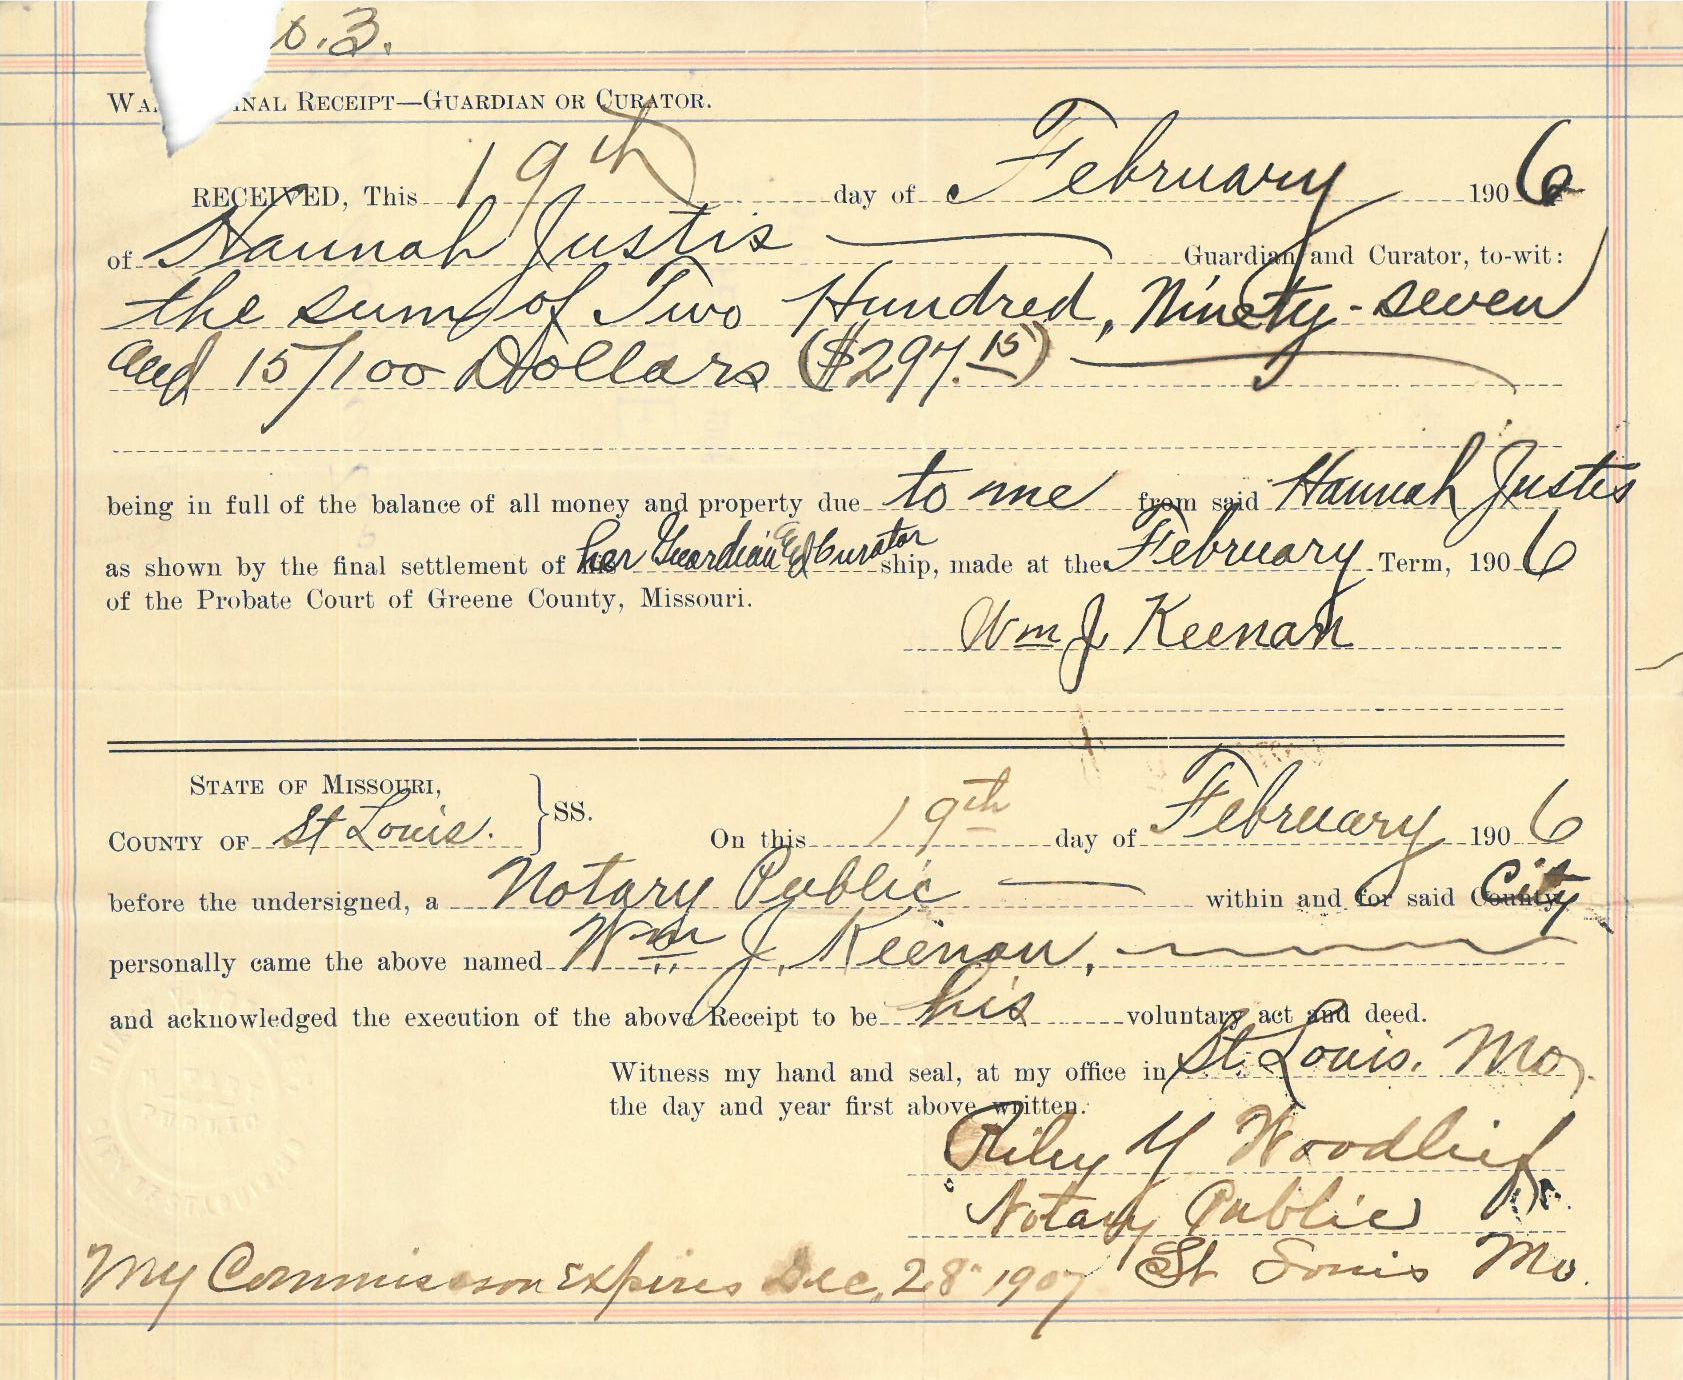 o. 3.
WA INAL RECEIPT—GUARDIAN OR CURATOR.
RECEIVED, This 19th day of February 1906
of Hannah Justis Guardian and Curator, to-wit:
the sum of Two Hundred, Ninety-seven
and 15/100 Dollars ($297.15)
being in full of the balance of all money and property due to me from said Hannah Justis
as shown by the final settlement of her Guardian and Curator ship, made at the February Term, 1906
of the Probate Court of Greene County, Missouri.
Wm J. Keenan
STATE OF MISSOURI,
COUNTY OF St Louis. } SS. On this 19th day of February 1906
before the undersigned, a Notary Public within and for said City
personally came the above named Wm J. Keenan,
and acknowledged the execution of the above Receipt to be his voluntary act and deed.
Witness my hand and seal, at my office in St. Louis. Mo.
the day and year first above written.
Riley Y Woodlief
Notary Public
My Commission Expires Dec. 28 1907 St Louis Mo.